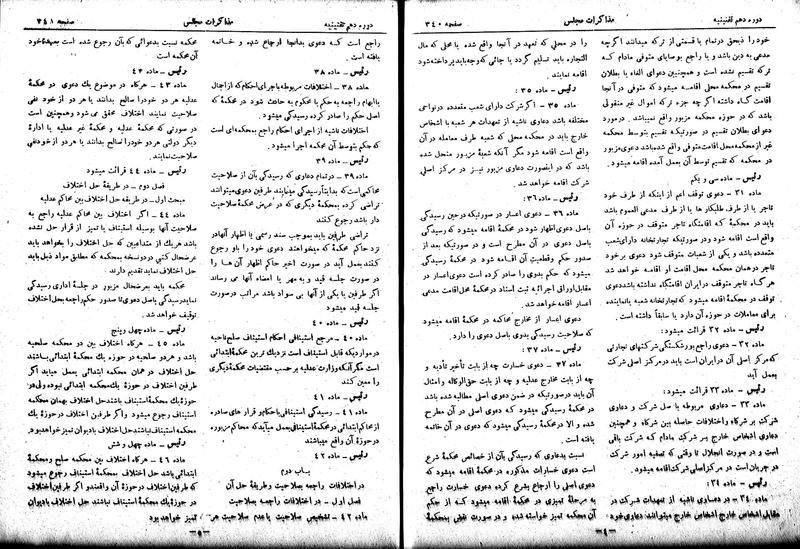 دوره دهم تقنینیه
مذاکرات مجلس
صفحه ۳۴۰
خود را ذیحق در تمام یا قسمتی از ترکه میدانند اگرچه
مدعی به دین باشد و یا راجع بوصایای متوفی مادام که
ترکه تقسیم نشده است و همچنین دعوای الغاء یا بطلان
تقسیم در محکمه محلی اقامه میشود که متوفی در آنجا
اقامت گاه داشته اگر چه جزء ترکه اموال غیر منقولی
باشد که در حوزه محکمه مزبور واقع نمیباشد. در مورد
دعوای بطلان تقسیم در صورتیکه تقسیم بتوسط محکمه
غیر از محکمه محل اقامت متوفی واقع شده باشد دعوی مزبور
در محکمه که تقسیم توسط آن بعمل آمده اقامه میشود.
رئیس – ماده سی و یکم
ماده ۳۱ – دعوی توقف اعم از اینکه از طرف خود
تاجر یا از طرف طلبکار ها یا از طرف مدعی العموم باشد
باید در محکمهٔ که اقامتگاه تاجر متوقف در حوزه آن
واقع است اقامه شود و در صورتیکه تجارتخانه دارای شعب
متعدده باشد و یکی از شعبات متوقف شود دعوی بر خود
تاجر در همان محکمه محل اقامت او اقامه خواهد شد
هر گاه تاجر متوقف در ایران اقامتگاه نداشته باشد دعوی
توقف در محکمه اقامه میشود که تجارتخانه شعبه یا نماینده
برای معاملات در حوزه آن دارد یا سابقاً داشته است.
رئیس – ماده ۳۲ قرائت میشود:
ماده ۳۲ – دعوی راجع بورشکستگی شرکتهای تجارتی
که مرکز اصلی آن در ایران است باید در مرکز اصلی شرکت
بعمل آید
رئیس – ماده ۳۳ قرائت میشود:
ماده ۳۳ – دعاوی مربوطه با صل شرکت و دعاوی
شرکت بر شرکاء و اختلافات حاصله بین شرکاء و همچنین
دعاوی اشخاص خارج بر شرکت مادام که شرکت باقی
است و در صورت انحلال تا وقتی که تصفیه امور شرکت
در جریان است در مرکز اصلی شرکت اقامه میشود.
رئیس – ماده ۳۴:
ماده ۳۴ – در دعاوی ناشیه از تعهدات شرکت در
مقابل اشخاص خارج اشخاص خارج میتوانند دعاوی خود
را در محلی که تعهد در آنجا واقع شده یا محلی که مال
التجاره باید تسلیم گردد یا جائی که وجه باید پرداخته شود
اقامه نمایند.
رئیس – ماده ۳۵:
ماده ۳۵ – اگر شرکت دارای شعب متعدده در نواحی
مختلفه باشد دعاوی ناشیه از تعهدات هر شعبه با اشخاص
خارج باید در محکمه محلی که شعبه طرف معامله در آن
واقع است اقامه شود مگر آنکه شعبهٔ مزبور منحل شده
باشد که در اینصورت دعاوی مزبور نیز در مرکز اصلی
شرکت اقامه خواهد شد.
رئیس – ماده ۳۶:
ماده ۳۶ – دعوی اعسار در صورتیکه در حین رسیدگی
باصل دعوی اظهار شود در محکمهٔ اقامه میشود که رسیدگی
باصل دعوی در آن مطرح است و در صورتیکه بعد از
صدور حکم وقطعیت آن اقامه شود در محکمهٔ رسیدگی
میشود که حکم بدوی را صادر کرده است دعوی اعسار در
مقابل اوراق اجرائیه ثبت اسناد در محکمهٔ محل اقامت مدعی
اعسار اقامه خواهد شد.
دعوی اعسار از مخارج محاکمه در محکمهٔ اقامه میشود
که صلاحیت رسیدگی بدوی باصل دعوی را دارد.
رئیس – ماده ۳۷:
ماده ۳۷ – دعوی خسارت چه از بابت تأخیر تأدیه و
چه از بابت مخارج عدلیه و چه از بابت حق الوکاله و امثال
آن باید در صورتیکه در ضمن دعوی اصلی مطالبه شده باشد
در محکمهٔ رسیدگی شود که دعوی اصلی در آن مطرح
شده و الا در محکمهٔ رسیدگی میشود که دعوی در آن خاتمه
یافته است.
نسبت بدعاوی که رسیدگی بآن از خصائص محکمهٔ شرع
است دعوی خسارات مذکوره در محکمهٔ اقامه میشود که
دعوی اصلی را ارجاع بشرع کرده دعوی خسارت راجع
به مرحلهٔ تمیزی در محکمهٔ اقامه میشود که از حکم
آن محکمه تمیز خواسته شده و در صورت نقض بمحکمهٔ
– ٤ –
دوره دهم تقنینیه
مذاکرات مجلس
صفحه ۳۴۱
راجع است که دعوی بدانجا ارجاع شده و خاتمه
یافته است.
رئیس – ماده ۳۸
ماده ۳۸ – اختلافات مربوطه باجرای احکام که از اجمال
یا ابهام راجعه به حکم یا محکوم به حادث شود در محکمهٔ که
اصل حکم را صادر کرده رسیدگی میشود.
اختلافات ناشیه از اجرای احکام راجع بمحکمه‌ای است
که حکم بتوسط آن محکمه اجرا میشود.
رئیس – ماده ۳۹
ماده ۳۹ – در تمام دعاوی که رسیدگی بآن از صلاحیت
محاکمی است که بدایتاً رسیدگی مینمایند طرفین دعوی میتوانند
تراضی کرده بمحکمهٔ دیگری که در عرض محکمهٔ صلاحیت
دار باشد رجوع کنند.
تراضی طرفین باید بموجب سند رسمی یا اظهار آنها در
نزد حاکم محکمهٔ که میخواهند دعوی خود را باو رجوع
کنند بعمل آید در صورت اخیر حاکم اظهار آن ها را
در صورت جلسه قید و به مهر یا امضاء آنها می رساند
اگر طرفین یا یکی از آنها بی سواد باشد مراتب در صورت
جلسه قید میشود
رئیس – ماده ۴۰
ماده ۴۰ – مرجع استینافی احکام استیناف صلح ناحیه
در مواردیکه قابل استیناف است نزدیک ترین محکمهٔ ابتدائی
است مگر آنکه وزارت عدلیه بر حسب مقتضیات محکمهٔ دیگری
را معین کند
رئیس – ماده ۴۱
ماده ۴۱ – رسیدگی استینافی با حکام و قرار های صادره
از محاکم ابتدائی در محکمهٔ استینافی بعمل میآید که محاکم مزبوره
در حوزهٔ آن واقع میباشند
رئیس – ماده ۴۲
باب دوم
در اختلافات راجعه بصلاحیت و طریقهٔ حل آن
فصل اول – در اختلافات راجعه بصلاحیت
ماده ۴۲ – تشخیص صلاحیت یا عدم صلاحیت هر
محکمه نسبت بدعوائی که بآن رجوع شده است بعهدهٔ خود
آن محکمه است
رئیس – ماده ۴۳
ماده ۴۳ – هر گاه در موضوع یک دعوی دو محکمهٔ
عدلیه هر دو خود را صالح بدانند یا هر دو از خود نفی
صلاحیت نمایند اختلاف محقق می شود و همچنین است
در صورتی که محکمهٔ عدلیه و محکمهٔ غیر عدلیه یا ادارهٔ
دیگر دولتی هر دو خود را صالح بدانند یا هر دو از خود نفی
صلاحیت نمایند.
رئیس – ماده ۴۴ قرائت میشود
فصل دوم – در طریقهٔ حل اختلاف
مبحث اول – در طریقهٔ حل اختلاف بین محاکم عدلیه
ماده ۴۴ – اگر اختلاف بین محاکم عدلیه راجع به
صلاحیت آنها بوسیله استیناف یا تمیز از قرار حل نشده
باشد هر یک از متداعیین که حل اختلاف را بخواهد باید
عرضحال کتبی در دو نسخه بمحکمه که مطابق مواد ذیل باید
حل اختلاف نماید تقدیم دارند.
محکمه باید بعرضحال مزبور در جلسهٔ اداری رسیدگی
نماید رسیدگی باصل دعوی تا صدور حکم راجعه بحل اختلاف
توقیف خواهد شد.
رئیس – ماده چهل و پنج
ماده ۴۵ – هرگاه اختلاف بین دو محکمه صلحیه
باشد و هر دو صلحیه در حوزهٔ یک محکمهٔ ابتدائی باشند
حل اختلاف در همان محکمه ابتدائی بعمل میاید اگر
طرفین اختلاف در حوزهٔ یک محکمه ابتدائی نبوده ولی در
حوزهٔ یک محکمهٔ استیناف باشند حل اختلاف بهمان محکمه
استیناف رجوع میشود و اگر طرفین اختلاف در حوزهٔ یک
محکمهٔ استیناف نباشند حل اختلاف با دیوان تمیز خواهد بود.
رئیس – ماده چهل و شش
ماده ۴۶ – هرگاه اختلاف بین محکمه صلح و محکمهٔ
ابتدائی باشد حل اختلاف بمحکمهٔ استیناف رجوع میشود
که طرفین اختلاف در حوزهٔ آن واقعند و اگر طرفین در حوزهٔ
یک محکمهٔ استیناف نباشند حل اختلاف با دیوان
تمیز خواهد بود
– ٥ –